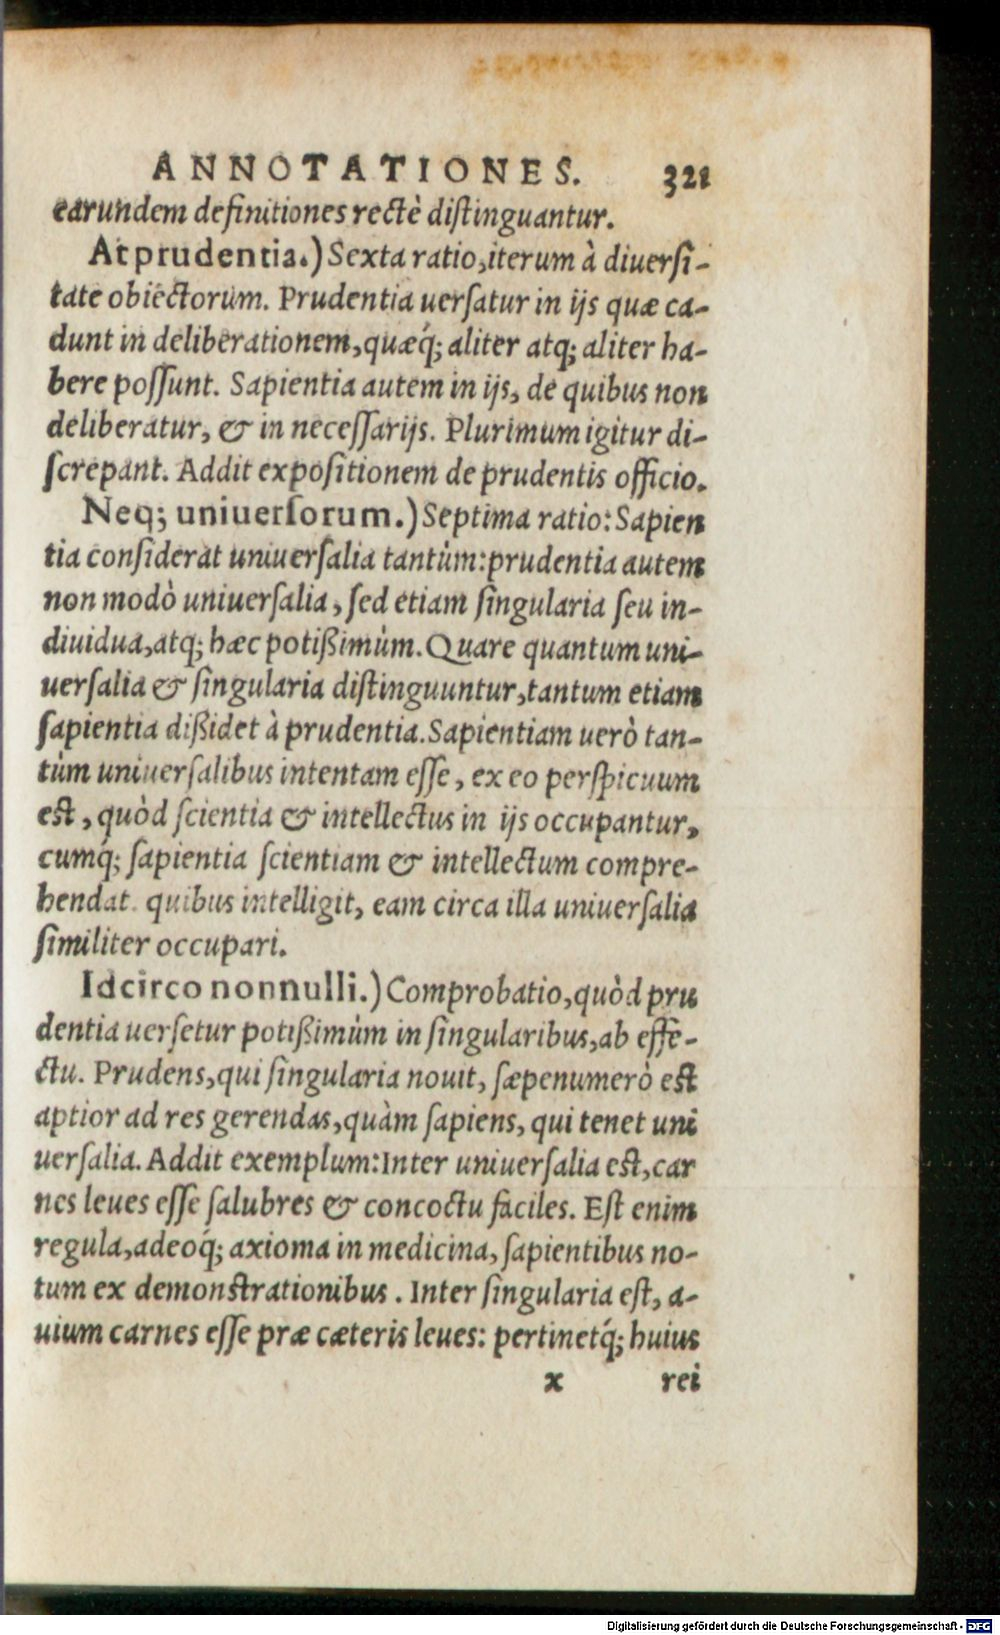 ANNOTATIONES. 321
earundem definitiones rectè diſtinguantur.
At prudentia.) Sexta ratio, iterum à diuerſi-
tate obiectorum. Prudentia uerſatur in ijs quæ ca-
dunt in deliberationem, quæq́; aliter atq; aliter ha-
bere poſſunt. Sapientia autem in ijs, de quibus non
deliberatur, & in neceſſarijs. Plurimum igitur di-
ſcrepant. Addit expoſitionem de prudentis officio.
Neq; uniuerſorum.) Septima ratio: Sapien
tia conſiderat uniuerſalia tantùm: prudentia autem
non modò uniuerſalia, ſed etiam ſingularia ſeu in-
diuidua, atq; hæc potißimùm. Quare quantum uni-
uerſalia & ſingularia diſtinguuntur, tantum etiam
ſapientia dißidet à prudentia. Sapientiam uerò tan-
tùm uniuerſalibus intentam eſſe, ex eo perſpicuum
eſt, quòd ſcientia & intellectus in ijs occupantur,
cumq́; ſapientia ſcientiam & intellectum compre-
hendat. quibus intelligit, eam circa illa uniuerſalia
ſimiliter occupari.
Idcirco nonnulli.) Comprobatio, quòd pru
dentia uerſetur potißimùm in ſingularibus, ab effe-
ctu. Prudens, qui ſingularia nouit, ſæpenumerò eſt
aptior ad res gerendas, quàm ſapiens, qui tenet uni
uerſalia. Addit exemplum: Inter uniuerſalia eſt, car
nes leues eſſe ſalubres & concoctu faciles. Eſt enim
regula, adeoq́; axioma in medicina, ſapientibus no-
tum ex demonſtrationibus. Inter ſingularia eſt, a-
uium carnes eſſe præ cæteris leues: pertinetq́; huius
x rei
Digitalisierung gefördert durch die Deutsche Forschungsgemeinschaft - DFG